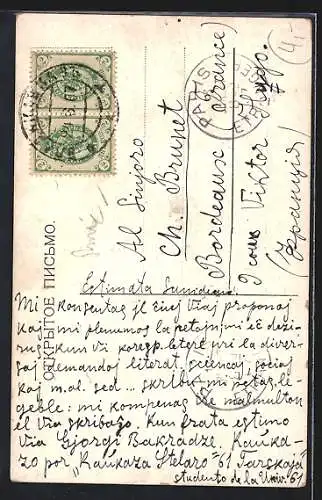 4,-
ОТКРЫТОЕ ПИСЬМО.
PARIS
ETRANGER
Al Sinjoro
Ch. Brunet
Bordeaux (France)
9 cour Viktor Hugo.
(Франція)
Estimata Samideano
Mi konsentas je ĉiuj viaj proponoj
kaj mi plenumos la petojn: mi ĉe dezi-
ras kun vi koresp. letere pri la diver-
saj demandoj literat. sciencaj, sociaj
k. m. al. sed ... skribu mi petas le-
geble: mi kompenas ne malmulton
el via skribaĵo. Kun frata estimo
Via Gjorgi Bakradze. Kaŭka-
zo por "Kaŭkaza Stelaro" 61 Tarskaja
studento de la Univ. 61